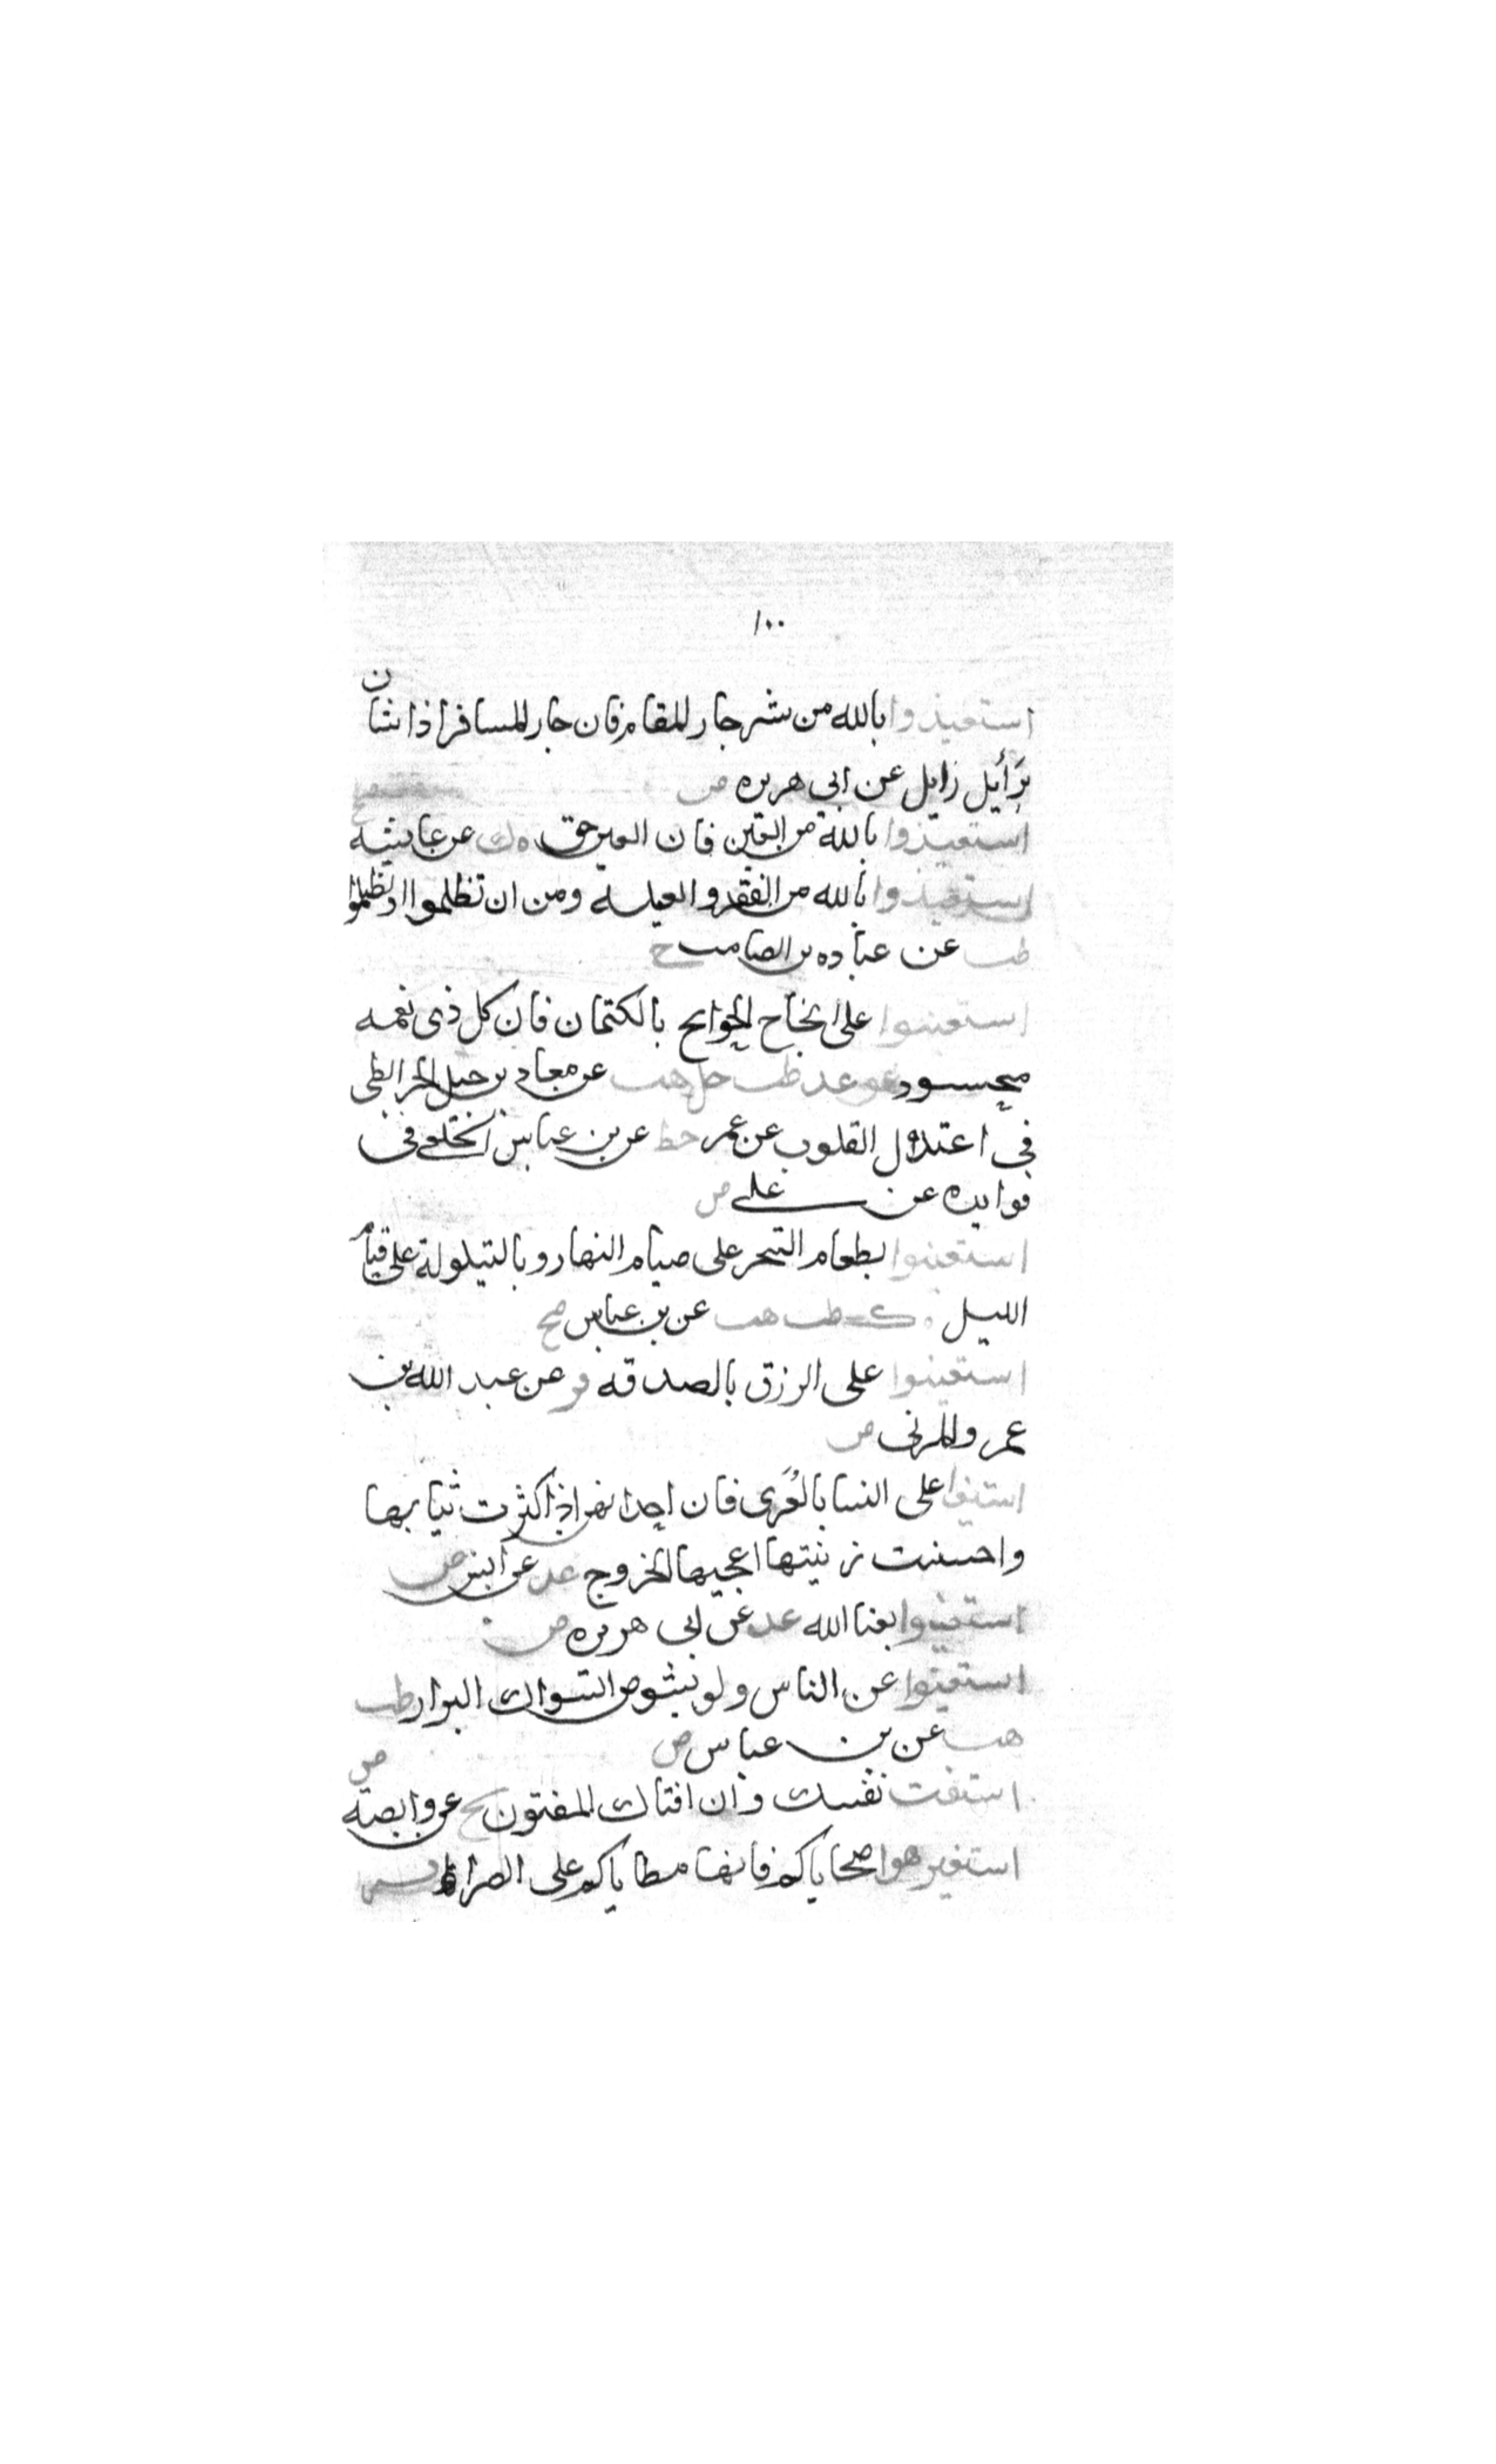 ١٠٠
استعيذوا بالله من شر جار المقام فان جار المسافر اذا شا ان
يزايل زايل عن ابى هريره ص
استعيذوا بالله من العين فان العين حق ه ك عن عايشه صح
استعيذوا بالله من الفقر والعيله ومن ان تظلموا او تظلموا
طب عن عباده بن الصامت ح
استعينوا على انجاح الحوايج بالكتمان فان كل ذى نعمه
محسود عق عد طب حل هب عن معاد بن جبل الخرايطى
فى اعتدال القلوب عن عمر خط عن بن عباس الخلعى فى
فوايده عن على ص
استعينوا بطعام السحر على صيام النهار وبالقيلولة على قيام
الليل ه ك طب هب عن بن عباس صح
استعينوا على الرزق بالصدقه فر عن عبد الله بن
عمرو المزنى ص
استعينوا على النسا بالعرى فان احداهن اذا كثرت ثيابها
واحسنت زينتها اعجبها الخروج عد عن انس ص
استغنوا بغنا الله عد عن ابى هريره ص
استغنوا عن الناس ولو بشوص السواك البزار طب
هب عن بن عباس ص
استفت نفسك وان افتاك المفتون تخ عن وابصة ص
استفرهوا ضحاياكم فانها مطاياكم على الصراط فر ص